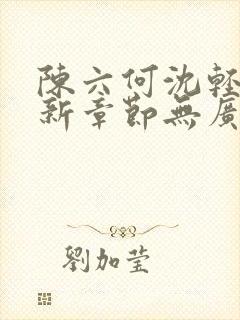 陳六何沈輕
新章節無廣
劉加莹